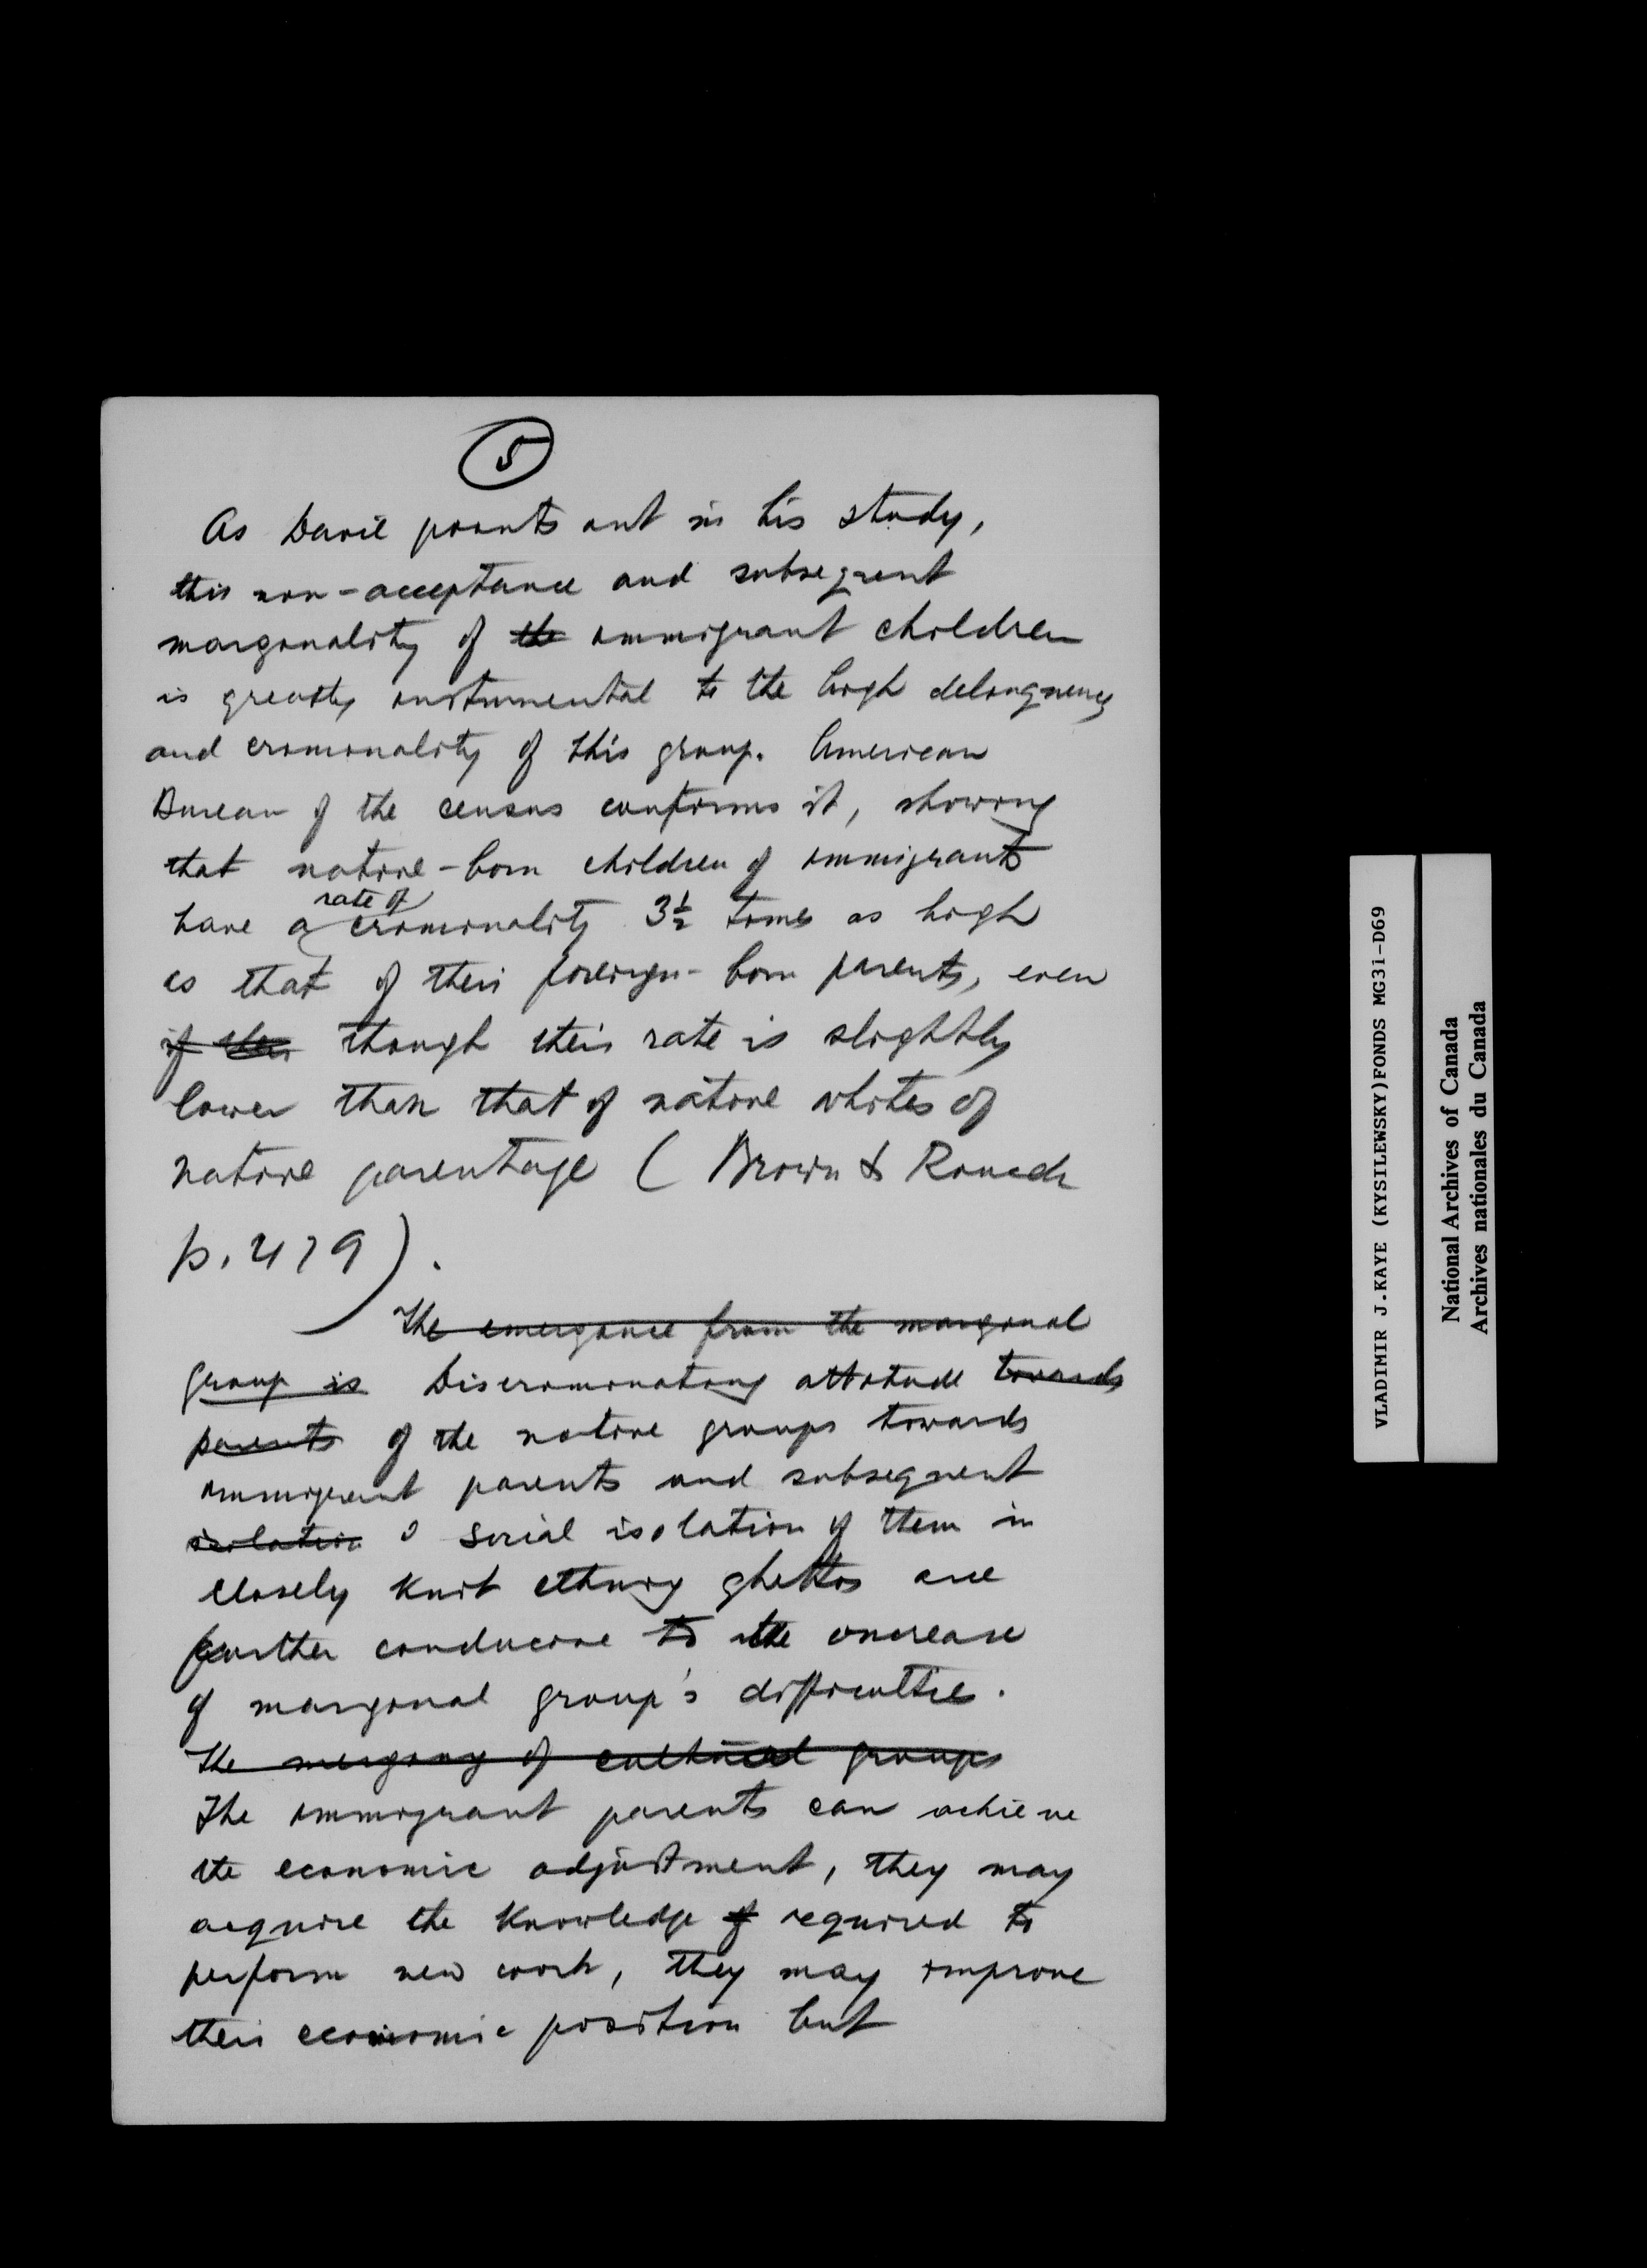 5
As Davie points out in his study,
this non-acceptance and subsequent
marginality of the immigrant children
is greatly instrumental to the high delinquency
and criminality of this group. American
Bureau of the census confirms it, showing
that native-born children of immigrants
rate of
have a criminality 3½ times as high
as that of their foreign-born parents, even
if their though their rate is slightly
lower than that of native whites of
native parentage (Brown & Roucek
p. 479).
The emergence from the marginal
group is Discriminating attitude towards
parents of the native groups towards
immigrant parents and subsequent
isolation social isolation of them in
closely knit ethnic ghettos are
further conducive to the increase
of marginal group's difficulties.
The merging of cultural groups
The immigrant parents can achieve
the economic adjustment, they may
acquire the knowledge of required to
perform new work, they may improve
their economic position but
VLADIMIR J.KAYE (KYSILEWSKY)FONDS MG31-D69
National Archives of Canada
Archives nationales du Canada